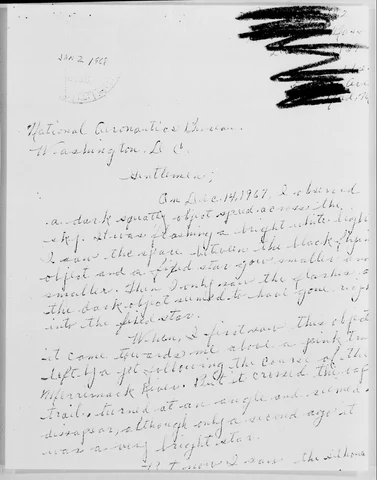 JAN 2 1968
National Aeronautics Division
Washington D C.
Gentlemen;
On Dec 14, 1967, I observed
a dark squatty object speed across the
sky. It was beaming a bright white light
I saw the space between the black flying
object and a fixed star grow smaller and
smaller. Then I only saw the flashes, as
the dark object seemed to have gone right
into the fixed star.
When, I first saw this object
it came towards me above a pink trail
left by a jet following the course of the
Merrimack River. But it crossed the
trail, turned at an angle and seemed
dissapear, although only a second ago it
was a very bright star.
now I saw the